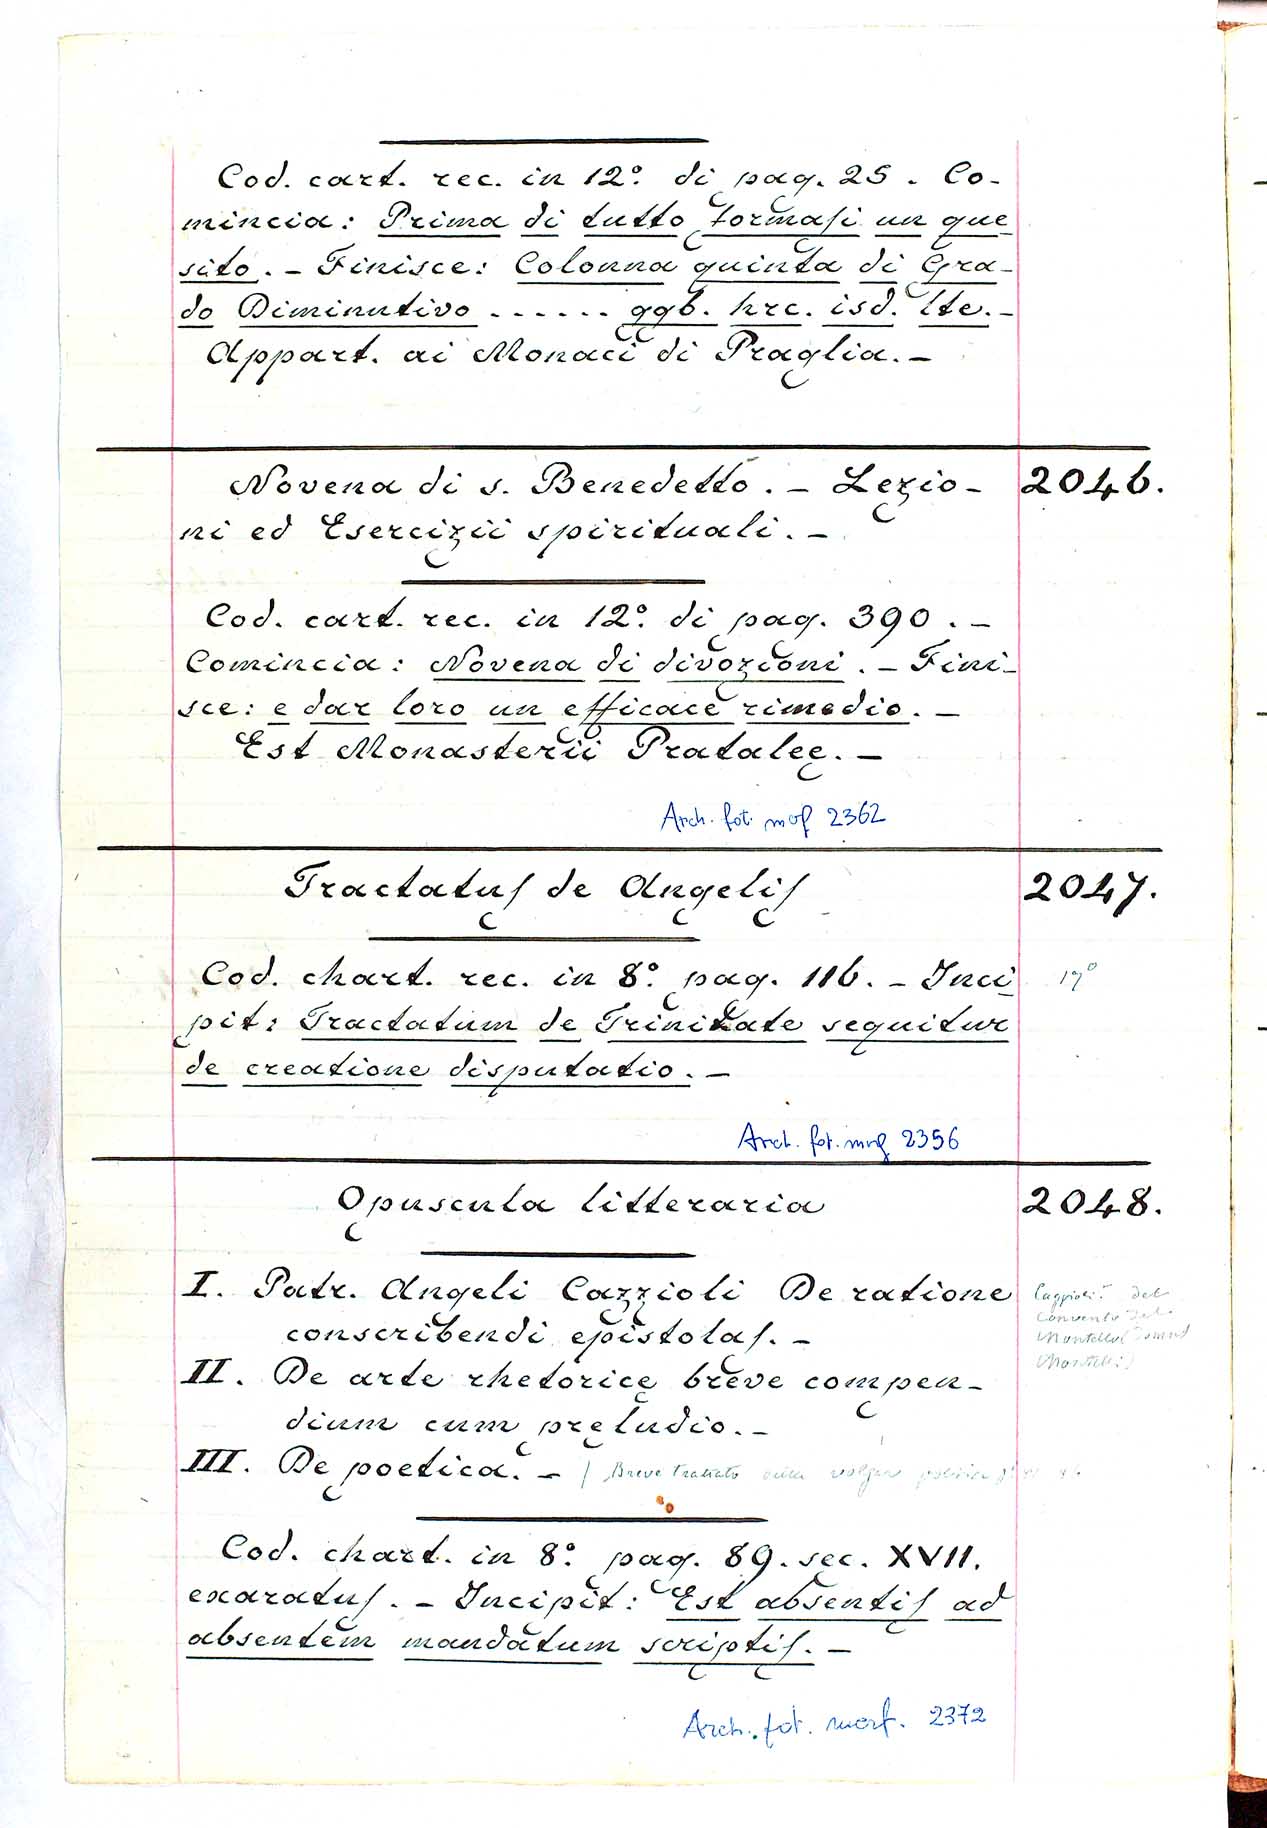 Cod. cart. rec. in 12º. di pag. 25. Co-
mincia: Prima di tutto formasi un que-
sito. - Finisce: Colonna quinta di Gra-
do Diminutivo ...... ggb. hrc. isd. lte. -
Appart. ai Monaci di Praglia. -
Novena di s. Benedetto. - Lezio- 2046.
ni ed Esercizii spirituali. -
Cod. cart. rec. in 12º. di pag. 390. -
Comincia: Novena di divozioni. - Fini-
sce: e dar loro un efficace rimedio. -
Est Monasterii Prataleę. -
Arch. fot. mof 2362
Tractatus de Angelis 2047.
Cod. chart. rec. in 8º. pag. 116. - Inci
pit: Tractatum de Trinitate sequitur
de creatione disputatio. -
Arch. fot. mrf 2356
Opuscula litteraria 2048.
I. Patr. Angeli Cazzioli De ratione
conscribendi epistolas. -
II. De arte rhetoricę breve compen-
dium cum pręludio. -
III. De poetica. - / Breve Trattato della volgar poesia
Cod. chart. in 8º. pag. 89. sec. XVII.
exaratus. - Incipit: Est absentis ad
absentem mandatum scriptis. -
Arch. fot. morf. 2372